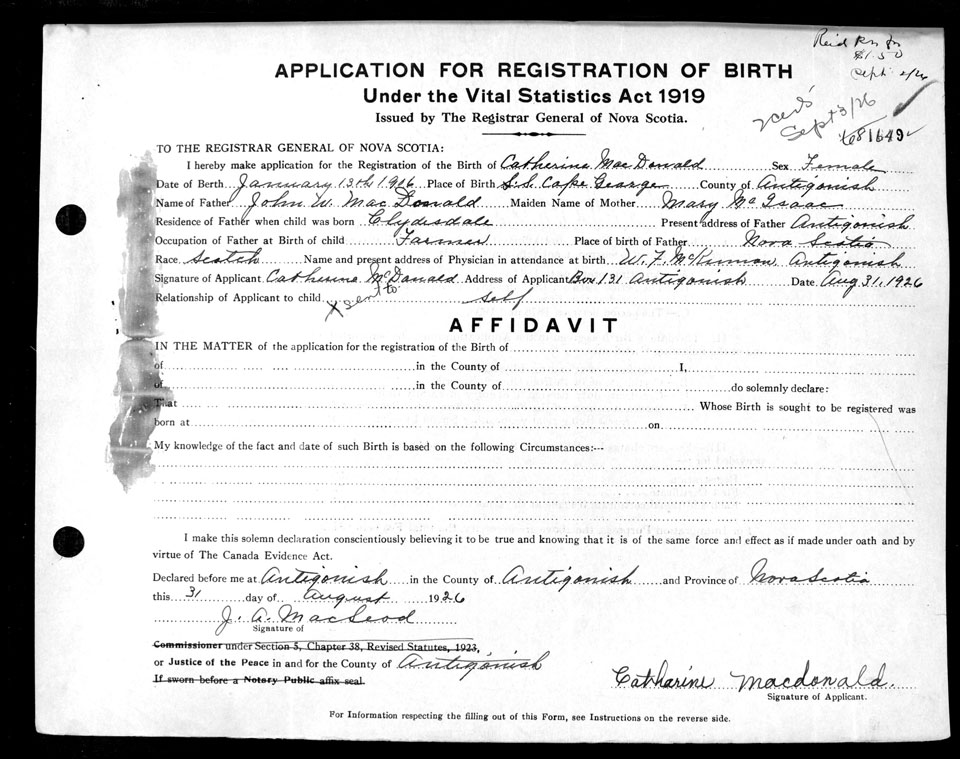 $1.50
Sept 2/26
Sept 3/26
681649
APPLICATION FOR REGISTRATION OF BIRTH
Under the Vital Statistics Act 1919
Issued by The Registrar General of Nova Scotia.
TO THE REGISTRAR GENERAL OF NOVA SCOTIA:
I hereby make application for the Registration of the Birth of Catherine MacDonald Sex Female
Date of Berth January 13th 1906 Place of Birth S.S. Cape George County of Antigonish
Name of Father John W. MacDonald Maiden Name of Mother Mary McIsaac
Residence of Father when child was born Clydesdale Present address of Father Antigonish
Occupation of Father at Birth of child Farmer Place of birth of Father Nova Scotia
Race Scotch Name and present address of Physician in attendance at birth W. F. McKinnon Antigonish
Signature of Applicant Catherine McDonald Address of Applicant Box 131 Antigonish Date Aug 31, 1926
Relationship of Applicant to child x sent to self
AFFIDAVIT
IN THE MATTER of the application for the registration of the Birth of
of in the County of I,
of in the County of do solemnly declare:
That Whose Birth is sought to be registered was
born at on
My knowledge of the fact and date of such Birth is based on the following Circumstances:---
I make this solemn declaration conscientiously believing it to be true and knowing that it is of the same force and effect as if made under oath and by
virtue of The Canada Evidence Act.
Declared before me at Antigonish in the County of Antigonish and Province of Nova Scotia
this 31 day of August 1926
J. A. MacLeod
Signature of
Commissioner under Section 5, Chapter 38, Revised Statutes, 1923,
or Justice of the Peace in and for the County of Antigonish
If sworn before a Notary Public affix seal.
Catharine Macdonald.
Signature of Applicant.
For Information respecting the filling out of this Form, see Instructions on the reverse side.